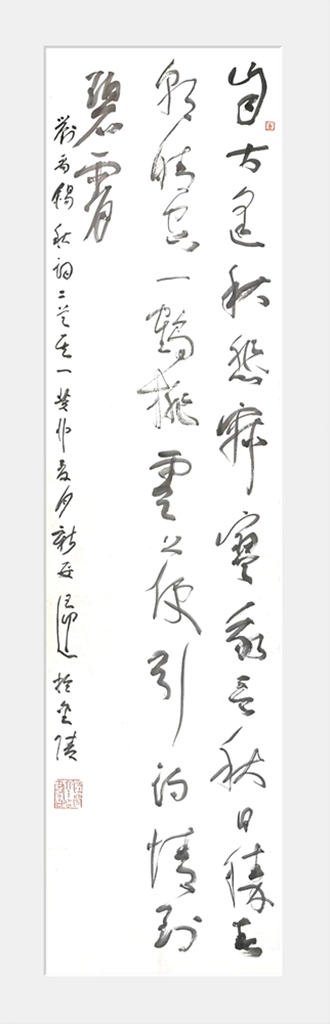 自古逢秋悲寂寥我言秋日勝春
朝晴空一鶴排雲上便引詩情到
碧霄
劉禹錫秋詞二首其一
於金陵